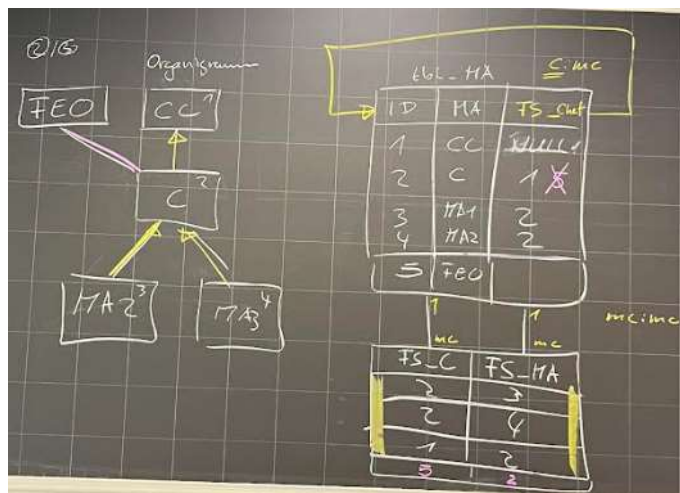 Organigramm
FEO
CC 1
C 2
MA2 3
MA3 4
tbl_MA
C:mc
ID MA FS_Chef
1 CC NULL
2 C 1 5
3 MA1 2
4 MA2 2
5 FEO
1 1
mc mc
mc:mc
FS_C FS_MA
2 3
2 4
1 2
5 2